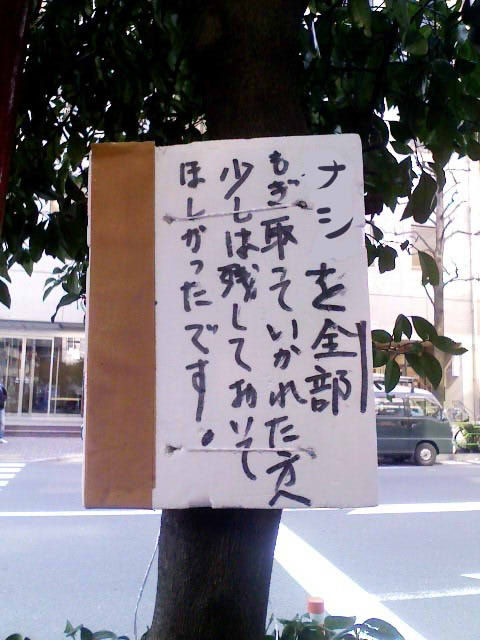 ナシを全部
もぎ取っていかれた方へ
少しは残しておいて
ほしかったです。